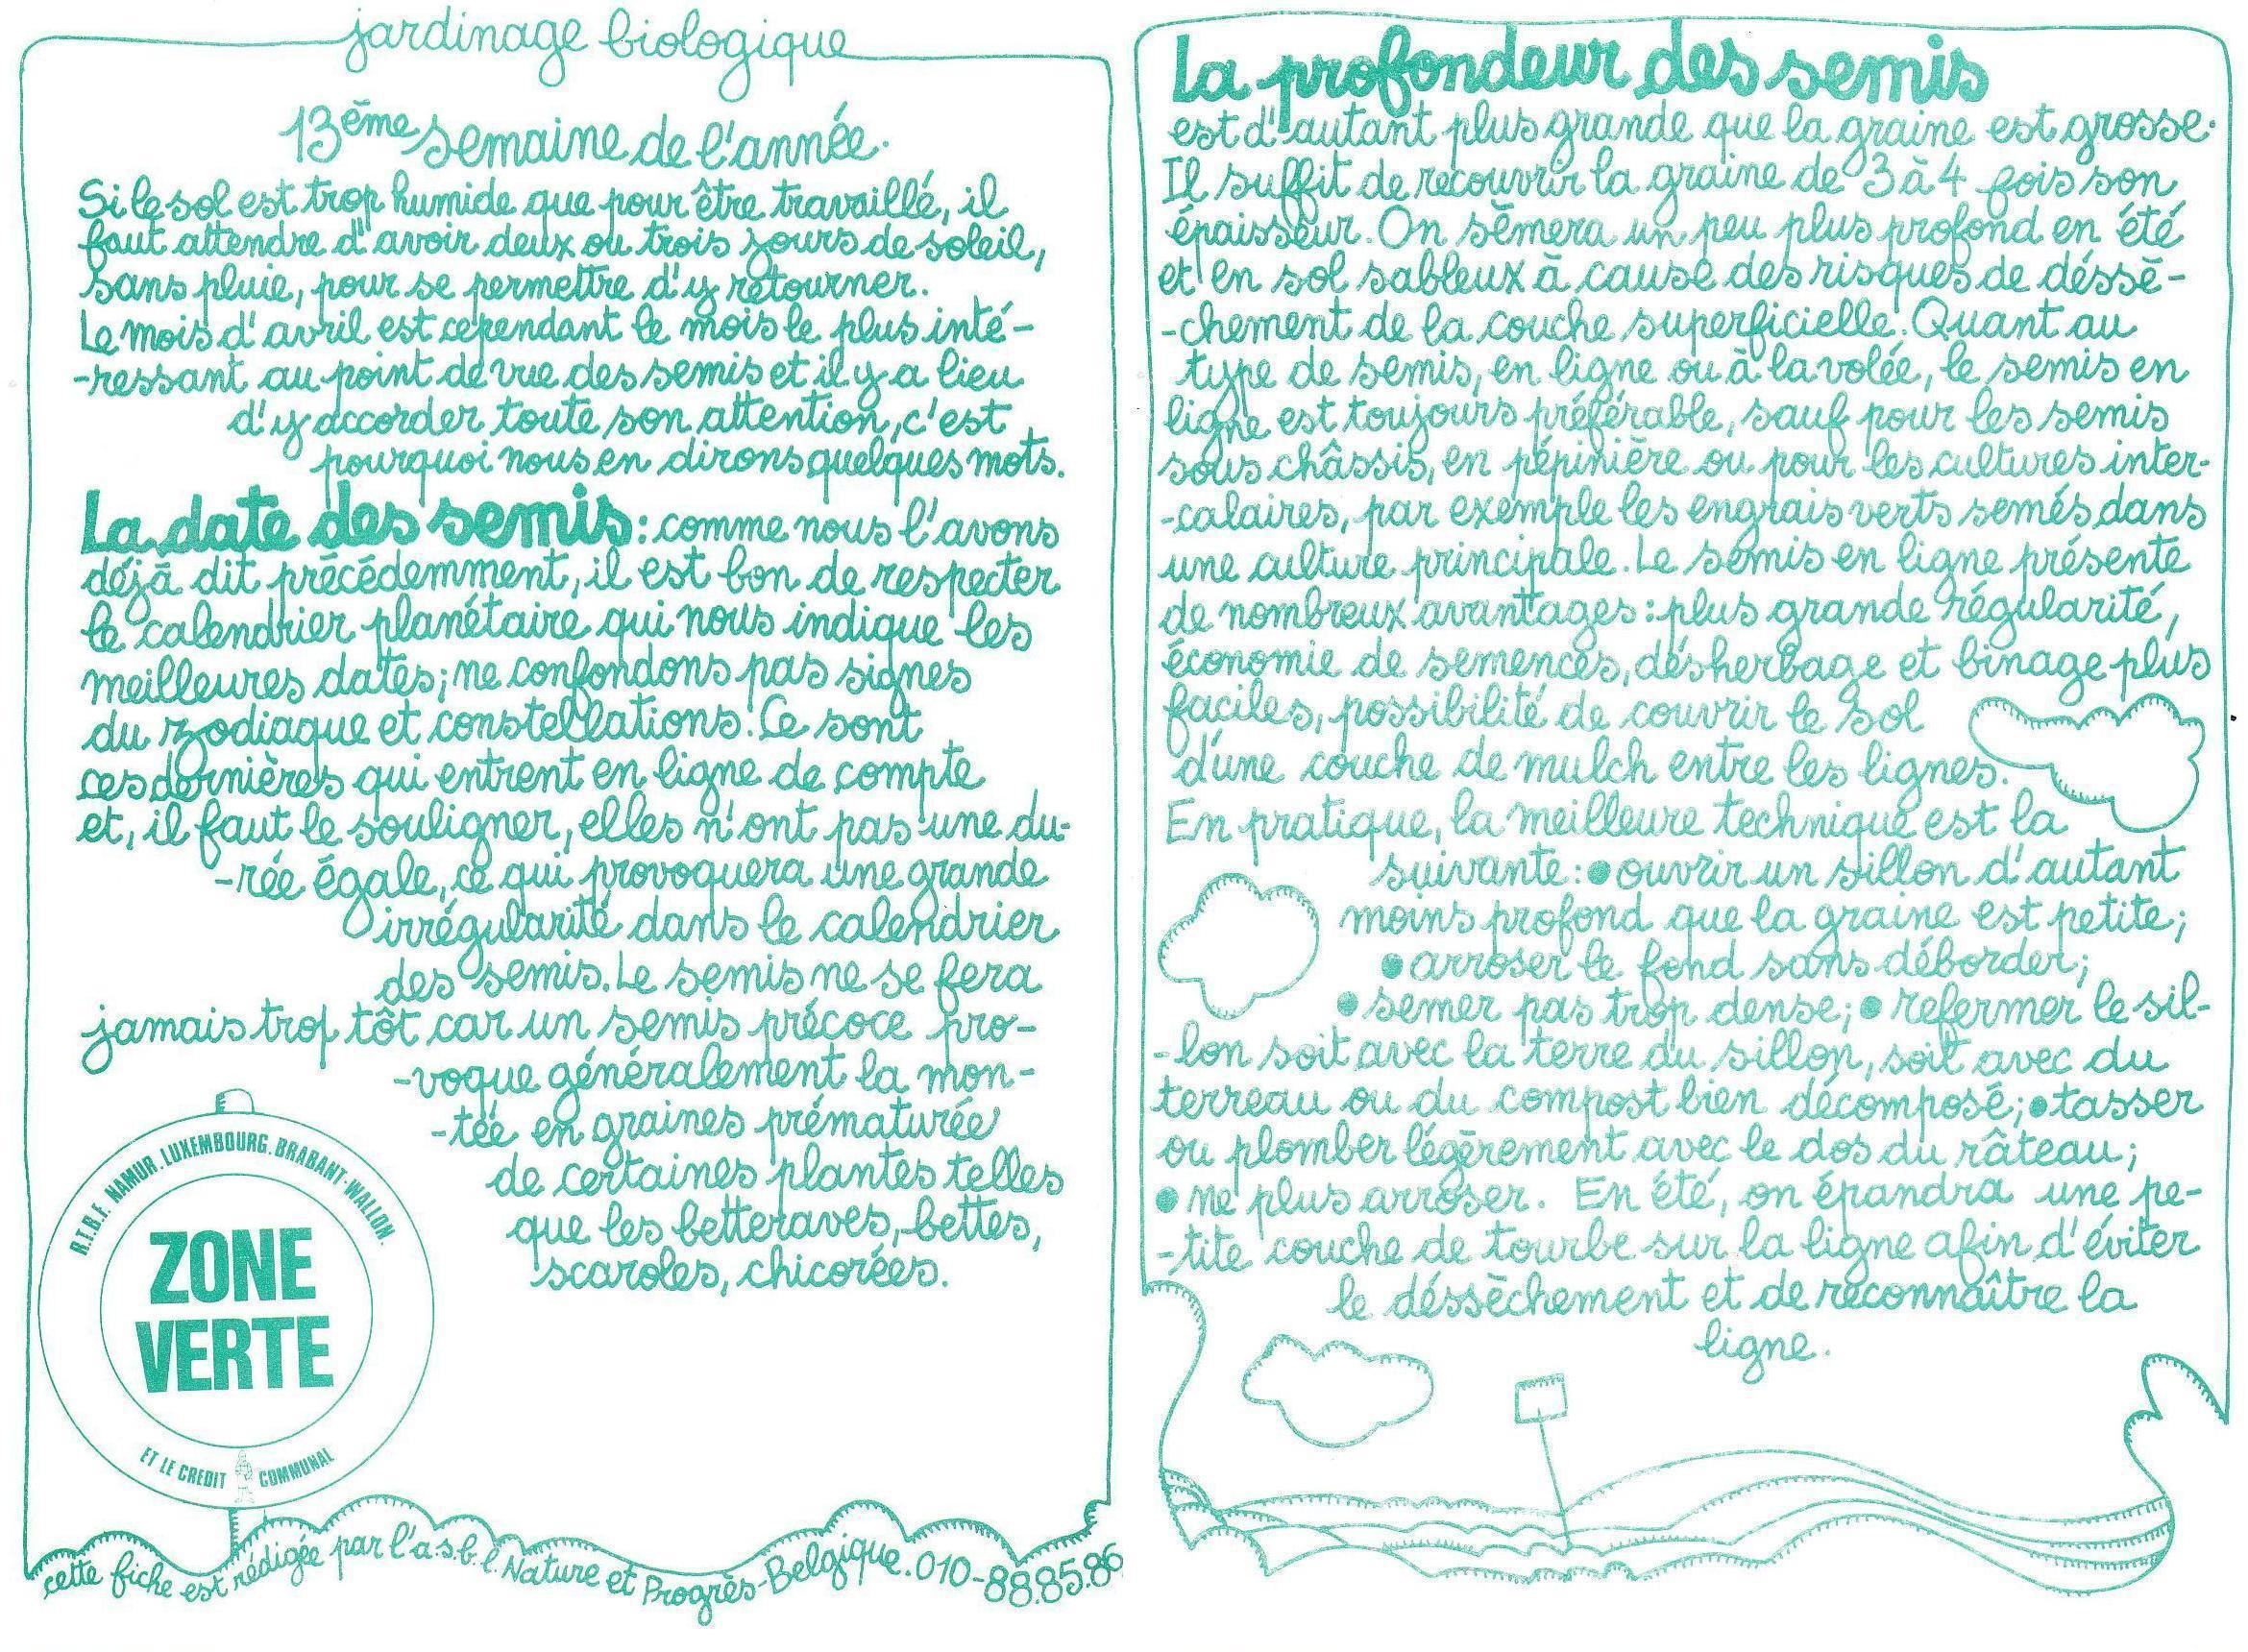 jardinage biologique
13ème semaine de l'année.
Si le sol est trop humide que pour être travaillé, il
faut attendre d'avoir deux ou trois jours de soleil,
sans pluie, pour se permettre d'y retourner.
Le mois d'avril est cependant le mois le plus inté-
-ressant au point de vue des semis et il y a lieu
d'y accorder toute son attention, c'est
pourquoi nous en dirons quelques mots.
La date des semis: comme nous l'avons
déjà dit précédemment, il est bon de respecter
le calendrier planétaire qui nous indique les
meilleures dates; ne confondons pas signes
du zodiaque et constellations. Ce sont
ces dernières qui entrent en ligne de compte
et, il faut le souligner, elles n'ont pas une du-
-rée égale, ce qui provoquera une grande
irrégularité dans le calendrier
des semis. Le semis ne se fera
jamais trop tôt car un semis précoce pro-
-voque généralement la mon-
-tée en graines prématurée
de certaines plantes telles
que les betteraves, bettes,
scaroles, chicorées.
R.T.B.F. NAMUR. LUXEMBOURG. BRABANT-WALLON.
ZONE
VERTE
ET LE CREDIT COMMUNAL
cette fiche est rédigée par l'a.s.b.l. Nature et Progrès-Belgique. 010-88.85.86
La profondeur des semis
est d'autant plus grande que la graine est grosse.
Il suffit de recouvrir la graine de 3 à 4 fois son
épaisseur. On sèmera un peu plus profond en été
et en sol sableux à cause des risques de déssè-
-chement de la couche superficielle. Quant au
type de semis, en ligne ou à la volée, le semis en
ligne est toujours préférable, sauf pour les semis
sous châssis, en pépinière ou pour les cultures inter-
-calaires, par exemple les engrais verts semés dans
une culture principale. Le semis en ligne présente
de nombreux avantages: plus grande régularité,
économie de semences, désherbage et binage plus
faciles, possibilité de couvrir le sol
d'une couche de mulch entre les lignes.
En pratique, la meilleure technique est la
suivante: ● ouvrir un sillon d'autant
moins profond que la graine est petite;
● arroser le fond sans déborder;
● semer pas trop dense; ● refermer le sil-
-lon soit avec la terre du sillon, soit avec du
terreau ou du compost bien décomposé; ● tasser
ou plomber légèrement avec le dos du râteau;
● ne plus arroser. En été, on épandra une pe-
-tite couche de tourbe sur la ligne afin d'éviter
le déssèchement et de reconnaître la
ligne.